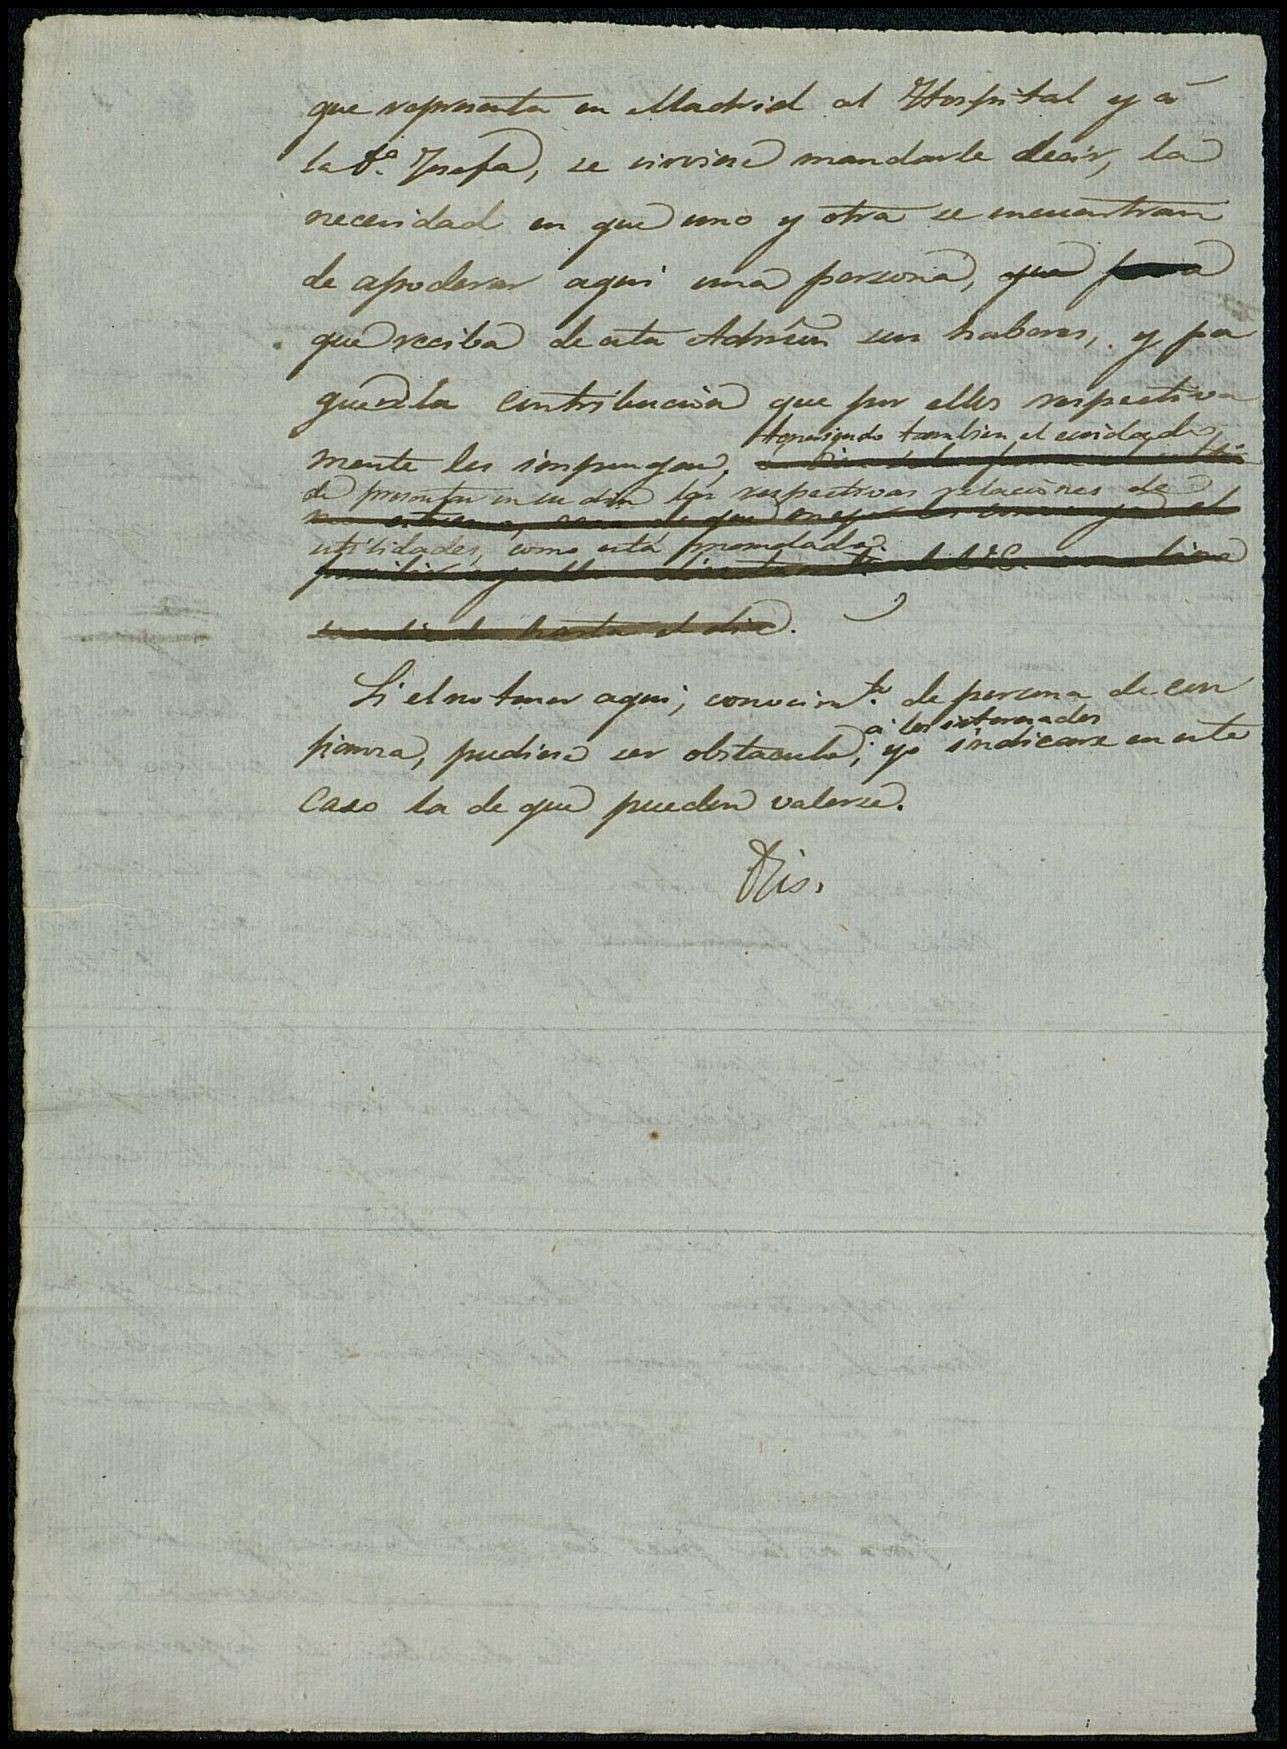 que representa en Madrid al Hospital y á
la Dª. Josefa, se sirviese mandarle decir, la
necesidad en que uno y otra se encuentran
de apoderar aqui una persona, que para
que reciba de esta Admon sus haberes, y pa
gue la contribucion que por ellos respectiva
mente les impongan,
teniendo tambien el cuidado
de presentar en su dia las respectivas relaciones de
utilidades, como está mandado.
hasta el dia.
Si el no tener aqui, conocimto. de persona de con
fianza, pudiese ser obstaculo, yo
á los interesados
indicare en este
caso la de que pueden valerse.
Dios.